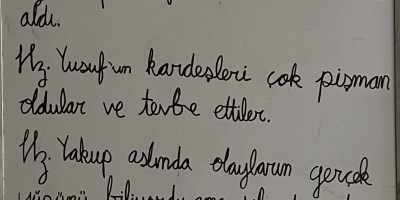 aldı.
Hz. Yusuf'un kardeşleri çok pişman
oldular ve tevbe ettiler.
Hz. Yakup aslında olayların gerçek
yüzünü biliyordu ama